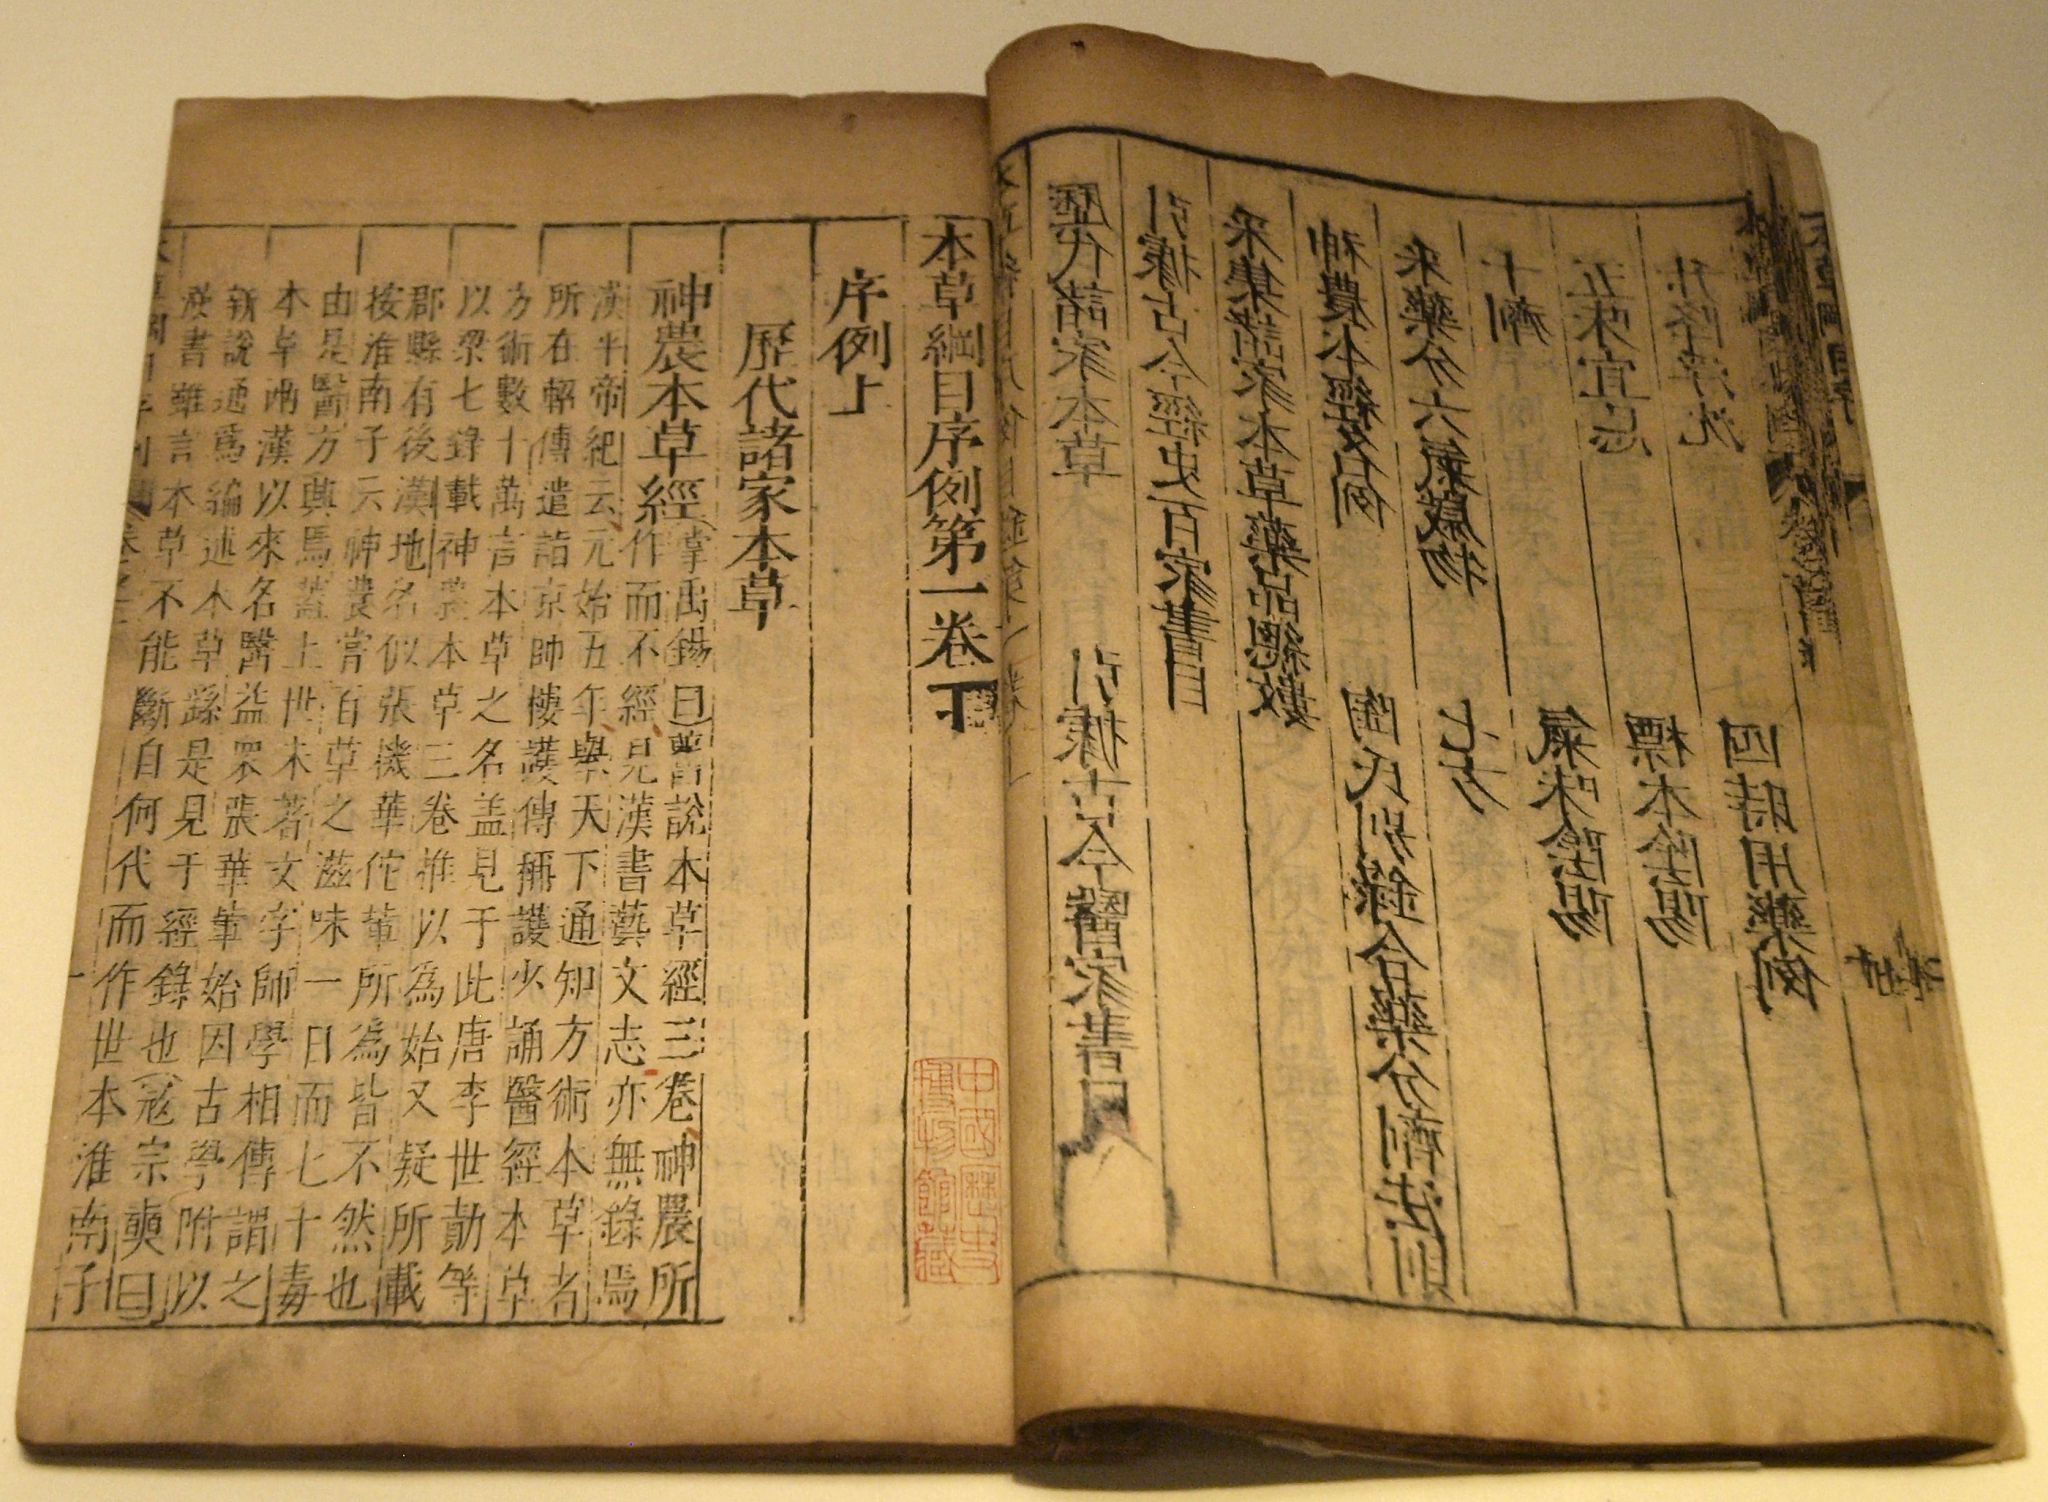 歷代諸家本草　引據古今醫家書目
引據古今經史百家書目
采集諸家本草藥品總數
神農本經名例　陶氏別錄合藥分劑法則
采藥分六氣歲物　七方
十劑　氣味陰陽
五味宜忌　標本陰陽
升降浮沉　四時用藥例
本草綱目序例第一卷下
序例上
歷代諸家本草
神農本草經掌禹錫曰舊說本草經三卷神農所
作而不經見漢書藝文志亦無錄焉
漢平帝紀云元始五年舉天下通知方術本草者
所在軺傳遣詣京師樓護傳稱護少誦醫經本草
方術數十萬言本草之名蓋見于此唐李世勣等
以梁七錄載神農本草三卷推以為始又疑所載
郡縣有後漢地名似張機華佗輩所為皆不然也
按淮南子云神農嘗百草之滋味一日而七十毒
由是醫方興焉蓋上世未著文字師學相傳謂之
本草兩漢以來名醫益眾張華輩始因古學附以
新說通為編述本草繇是見于經錄也寇宗奭曰
漢書雖言本草不能斷自何代而作世本淮南子
中國歷史
博物館藏